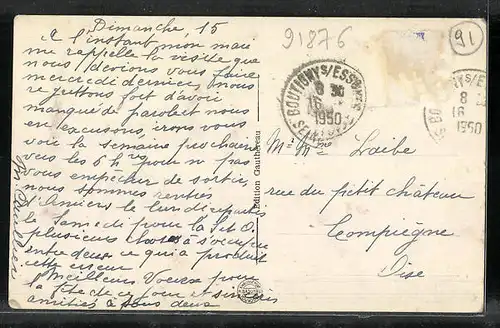 Dimanche, 15
A l'instant mon mari
me rappelle la visite que
nous devions vous faire
mercredi dernier, nous
regrettons fort d'avoir
manqué de parole et nous
en excusons, irons vous
voir la semaine prochaine
vers les 6h pour n pas
vous empêcher de sortir,
nous sommes rentrés
d'Amiens le lundi
le Samedi pour la S et O.
plusieurs à
entre deux ce qui a produit
cette erreur
Meilleurs Voeux pour
la fête de ce jour et sincères
amitiés à vous deux
91876
91
BOUTIGNY S/ESSONNE
8 30
16
1950
SEINE
Y S/ESS
8
16
1950
Mr Mme Laibe
rue du petit château
Compiègne
Oise
Edition Gautherau